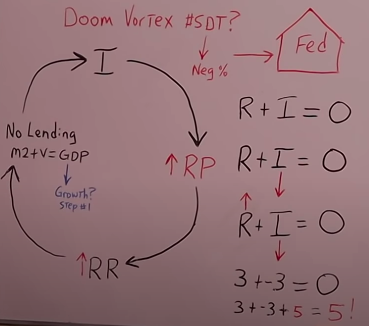 Doom Vortex #SDT?
Fed
Neg %
I
R + I = O
No Lending
M2 + V = GDP
↑ RP
R + I = O
Growth?
Step #1
R + I = O
↑RR
3 + -3 = O
3 + -3 + 5 = 5!